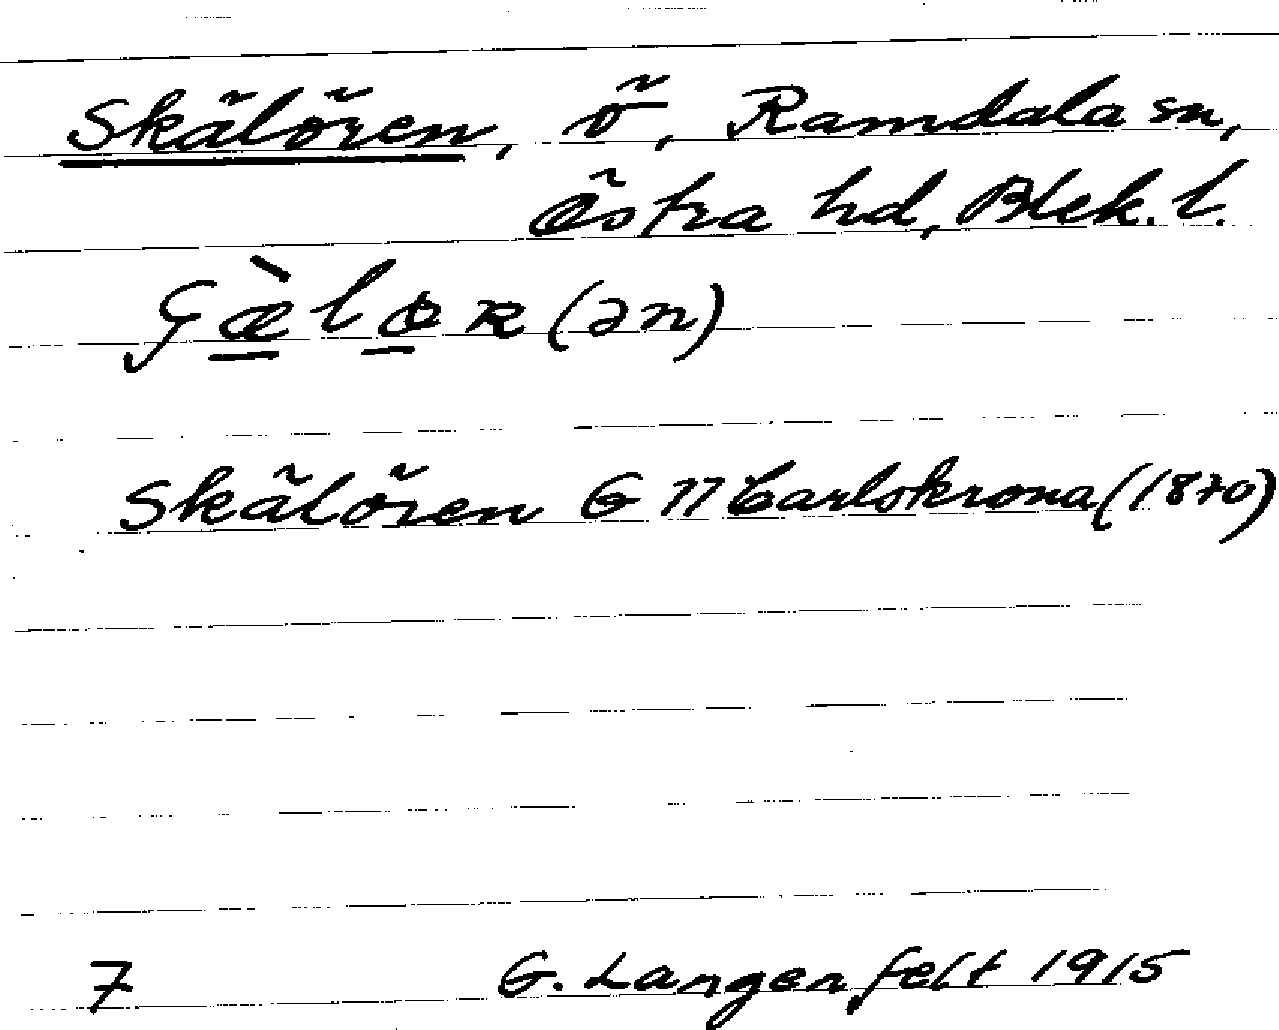 Skälören, ö, Ramdala sn,
Östra hd, Blek. l.
Skälören G 77 Carlskrona (1870)
7 G. Langenfelt 1915